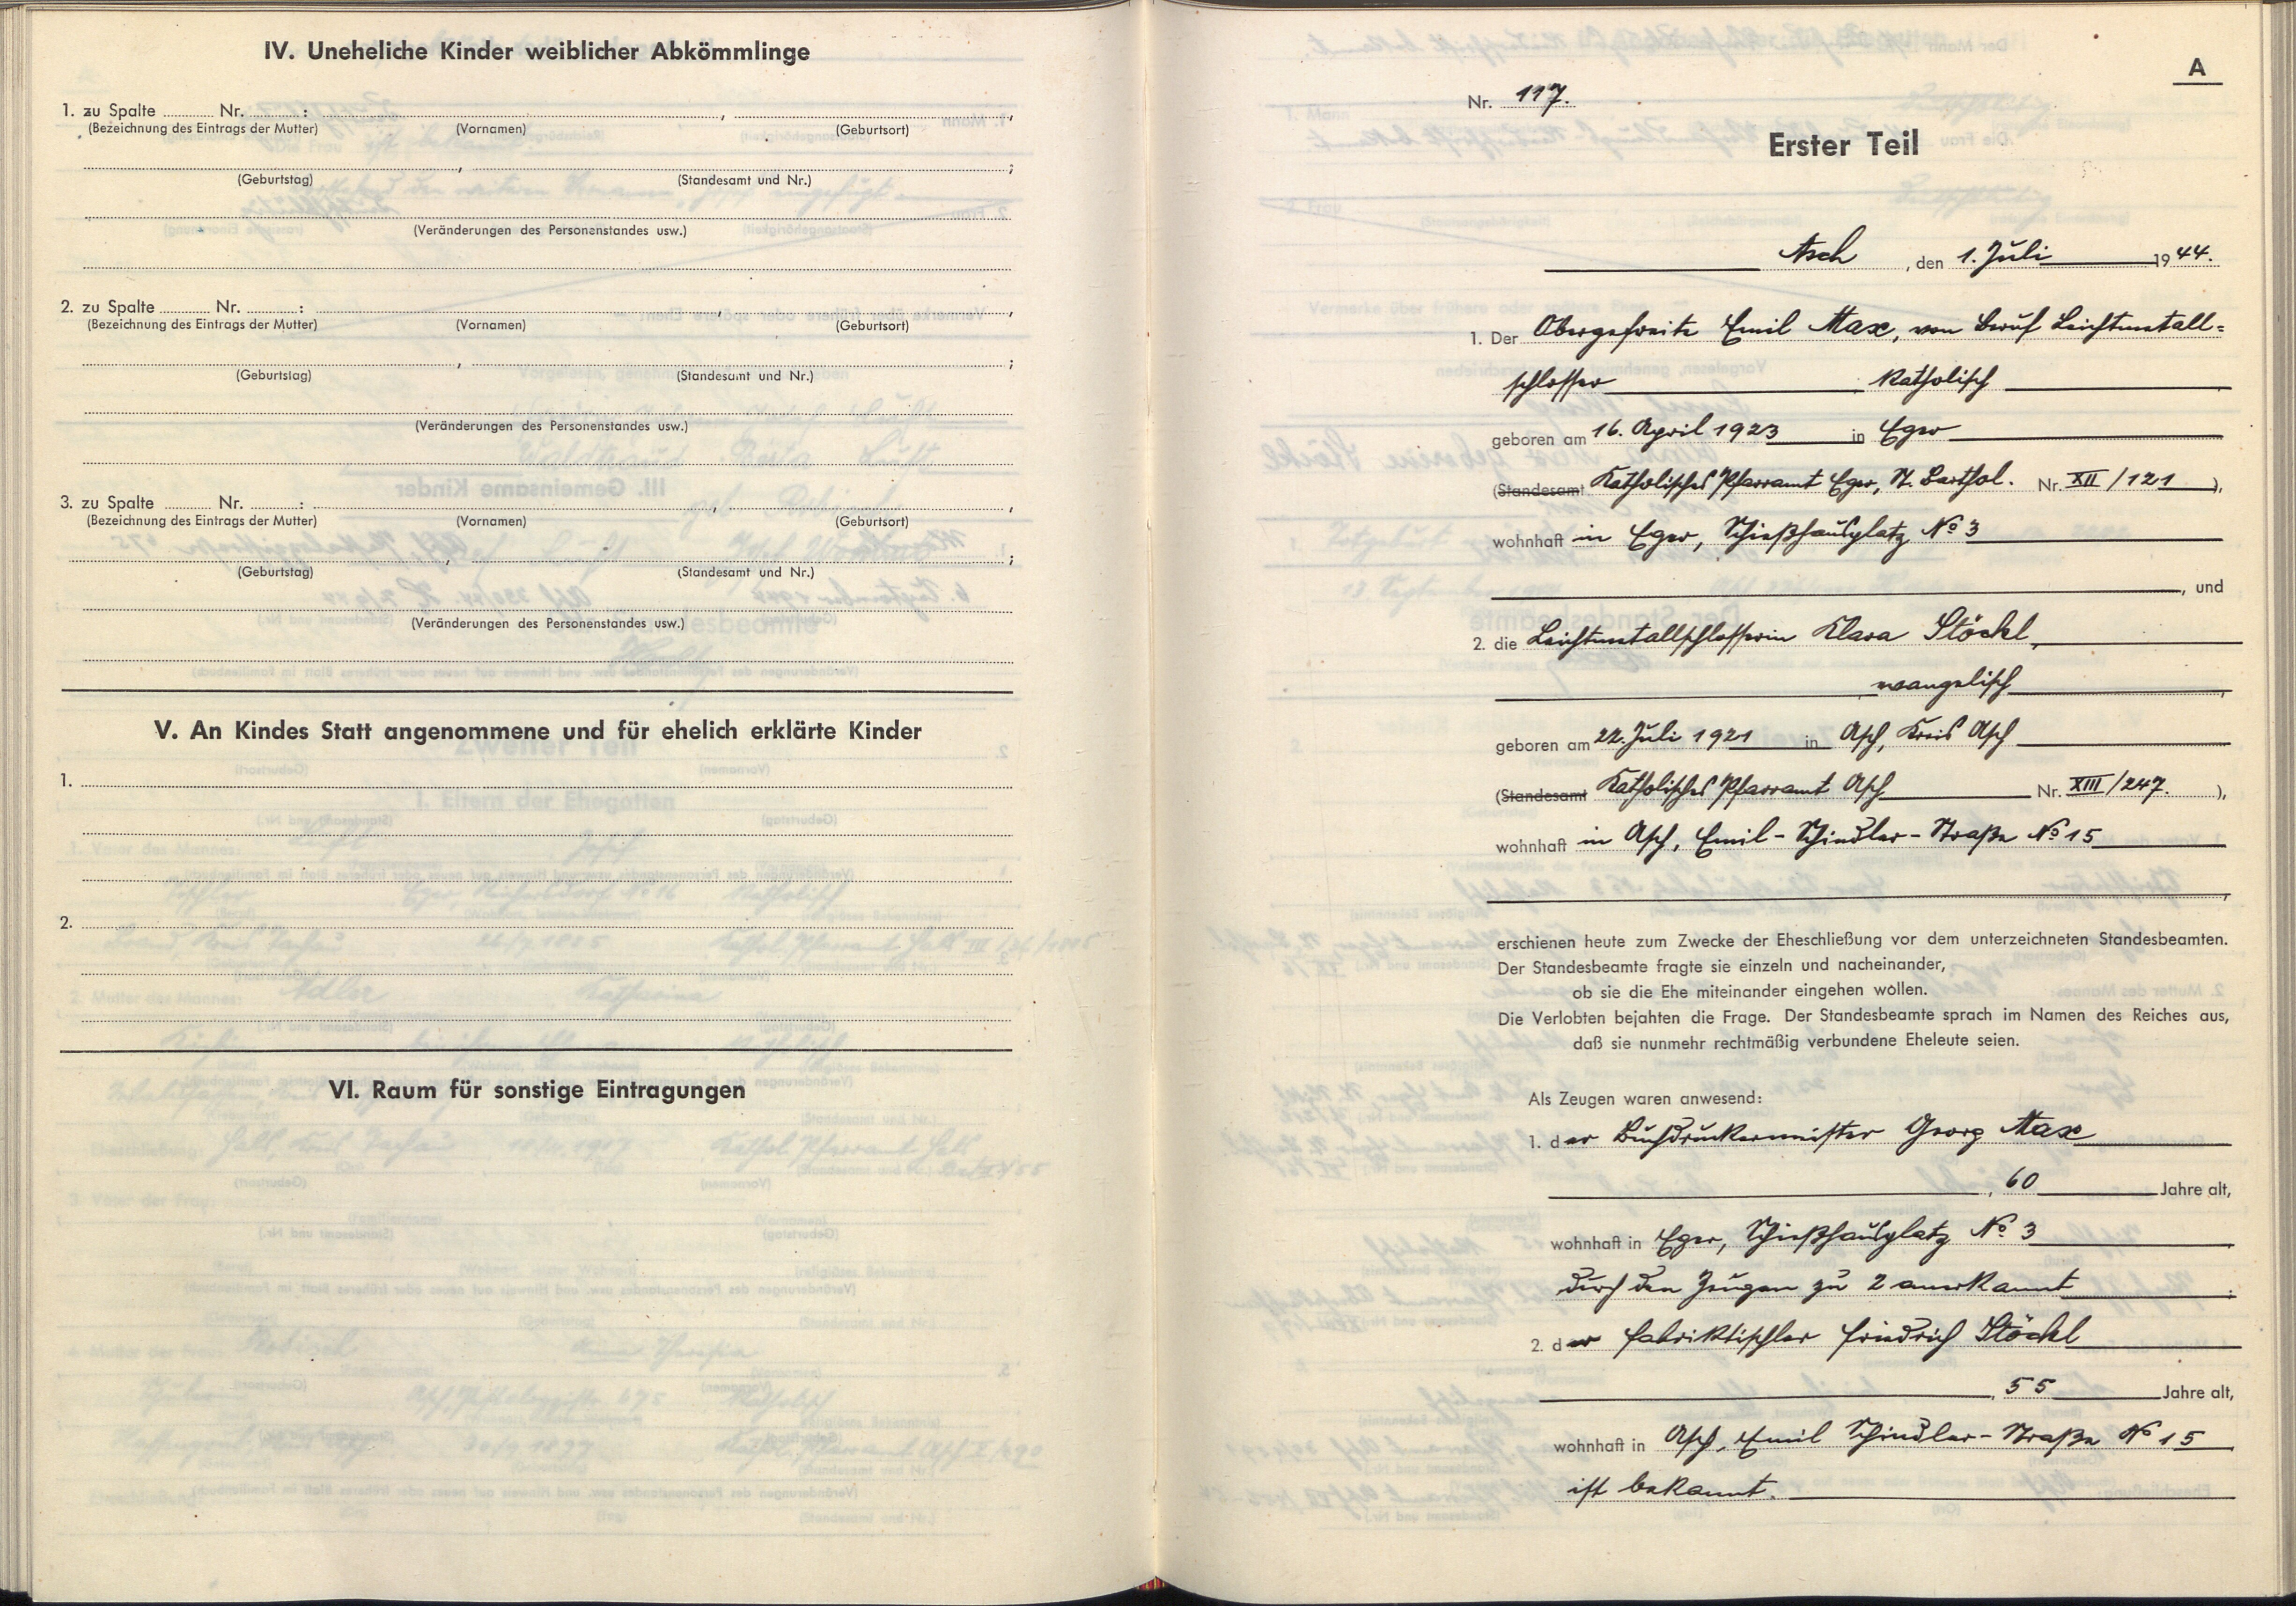 IV. Uneheliche Kinder weiblicher Abkömmlinge
1. zu Spalte ........ Nr. ........ :
(Bezeichnung des Eintrags der Mutter) (Vornamen) (Geburtsort)
(Geburtstag) (Standesamt und Nr.)
(Veränderungen des Personenstandes usw.)
2. zu Spalte ........ Nr. ........ :
(Bezeichnung des Eintrags der Mutter) (Vornamen) (Geburtsort)
(Geburtstag) (Standesamt und Nr.)
(Veränderungen des Personenstandes usw.)
3. zu Spalte ........ Nr. ........ :
(Bezeichnung des Eintrags der Mutter) (Vornamen) (Geburtsort)
(Geburtstag) (Standesamt und Nr.)
(Veränderungen des Personenstandes usw.)
V. An Kindes Statt angenommene und für ehelich erklärte Kinder
1.
2.
VI. Raum für sonstige Eintragungen
A
Nr. 117.
Erster Teil
Asch, den 1. Juli 1944.
1. Der Obergefreite Emil Max, von Beruf Leichtmetall=
schlosser katholisch
geboren am 16. April 1923 in Eger
(Standesamt Katholisches Pfarramt Eger, St. Barthol. Nr. XII/121),
wohnhaft in Eger, Schießhausplatz No 3
, und
2. die Leichtmetallschlosserin Klara Stöckl,
evangelisch,
geboren am 22. Juli 1921 in Asch, Kreis Asch
(Standesamt Katholisches Pfarramt Asch Nr. XIII/247.),
wohnhaft in Asch, Emil-Schindler-Straße No 15
,
erschienen heute zum Zwecke der Eheschließung vor dem unterzeichneten Standesbeamten.
Der Standesbeamte fragte sie einzeln und nacheinander,
ob sie die Ehe miteinander eingehen wollen.
Die Verlobten bejahten die Frage. Der Standesbeamte sprach im Namen des Reiches aus,
daß sie nunmehr rechtmäßig verbundene Eheleute seien.
Als Zeugen waren anwesend:
1. der Buchdruckermeister Georg Max
, 60 Jahre alt,
wohnhaft in Eger, Schießhausplatz No 3
durch den Zeugen zu 2 anerkannt.
2. der Fabriktischler Friedrich Stöckl
, 55 Jahre alt,
wohnhaft in Asch, Emil Schindler-Straße No 15
ist bekannt.